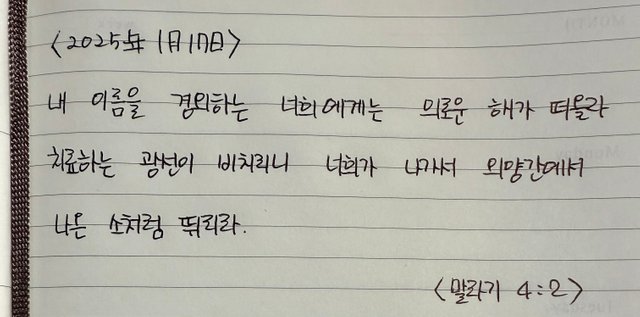 <2025年 1月 17日>
내 이름을 경외하는 너희에게는 의로운 해가 떠올라
치료하는 광선이 비치리니 너희가 나가서 외양간에서
나온 소처럼 뛰리라.
<말라기 4:2>